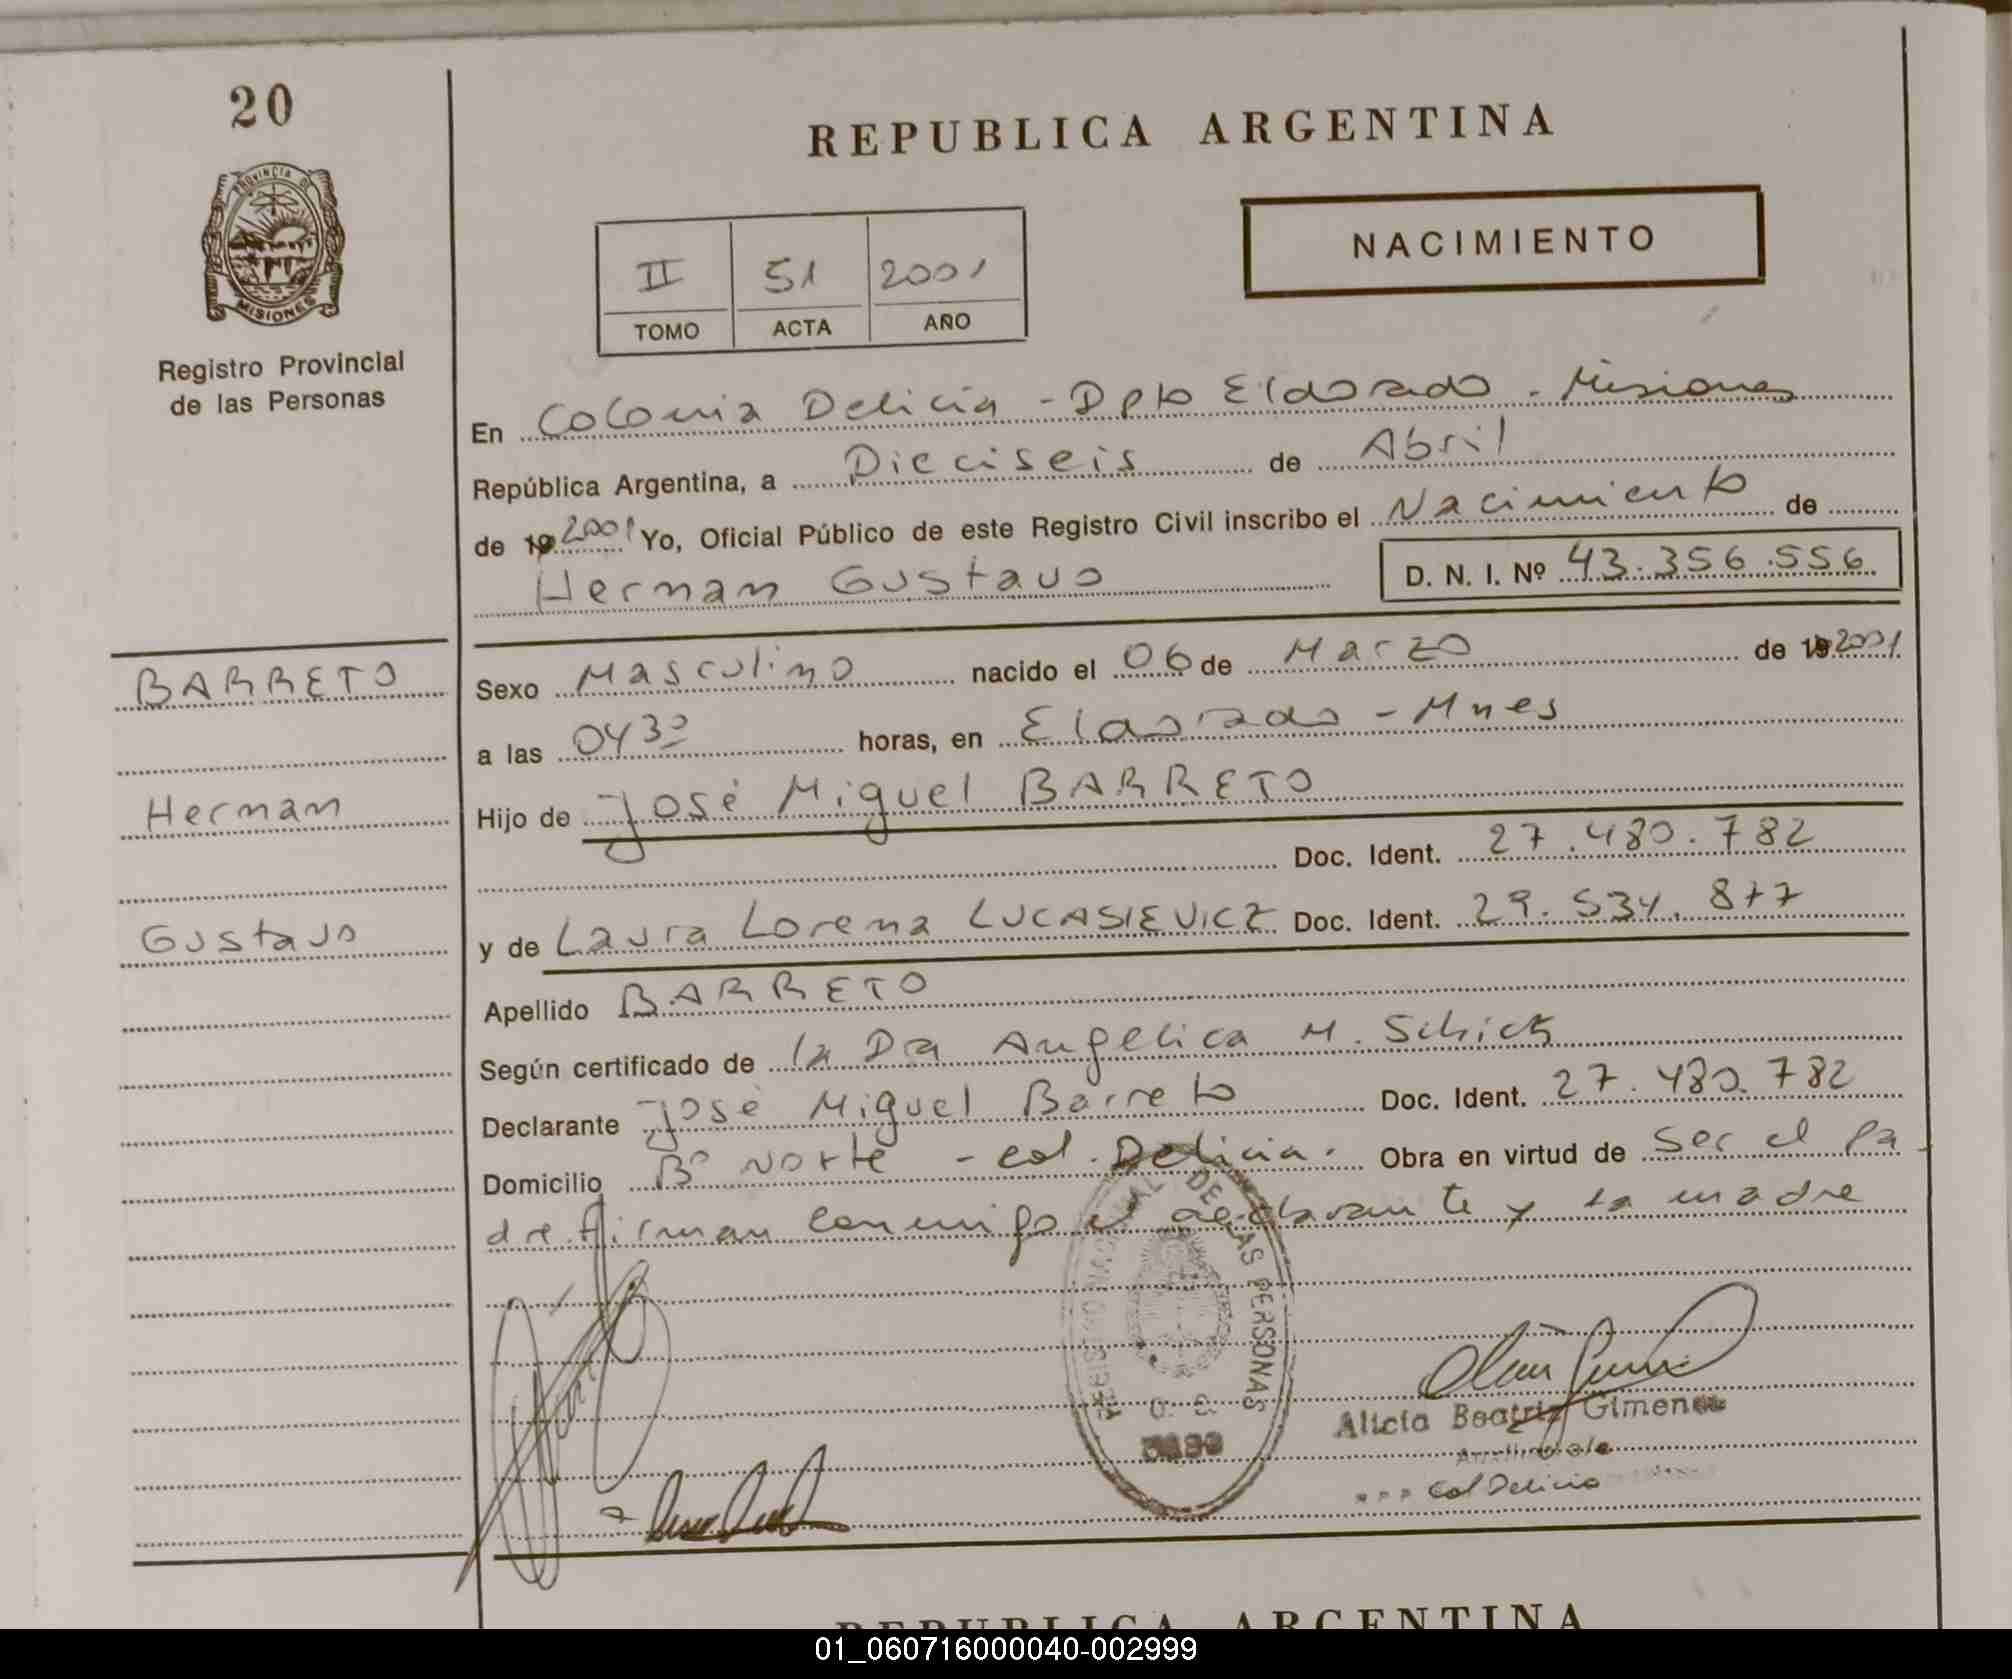 20
REPUBLICA ARGENTINA
PROVINCIA DE
MISIONES
NACIMIENTO
II 51 2001
TOMO ACTA AÑO
Registro Provincial
de las Personas
En Colonia Delicia - Dpto Eldorado - Misiones
República Argentina, a Dieciseis de Abril
de 19 2001 Yo, Oficial Público de este Registro Civil inscribo el Nacimiento de
Hernan Gustavo D. N. I. Nº 43.356.556
BARRETO
Hernan
Gustavo
Sexo Masculino nacido el 06 de Marzo de 19 2001
a las 0430 horas, en Eldorado - Mnes
Hijo de José Miguel BARRETO
Doc. Ident. 27.480.782
y de Laura Lorena LUCASIEVICZ Doc. Ident. 29.534.877
Apellido BARRETO
Según certificado de la Dra Angelica M.
Declarante José Miguel Barreto Doc. Ident. 27.480.782
Domicilio Bº Norte - Col. Delicia. Obra en virtud de ser el pa
dre firman conmigo el declarante y la madre
DE LAS PERSONAS
Alicia Beatriz Gimenez
Col Delicia
REPUBLICA ARGENTINA
01_060716000040-002999